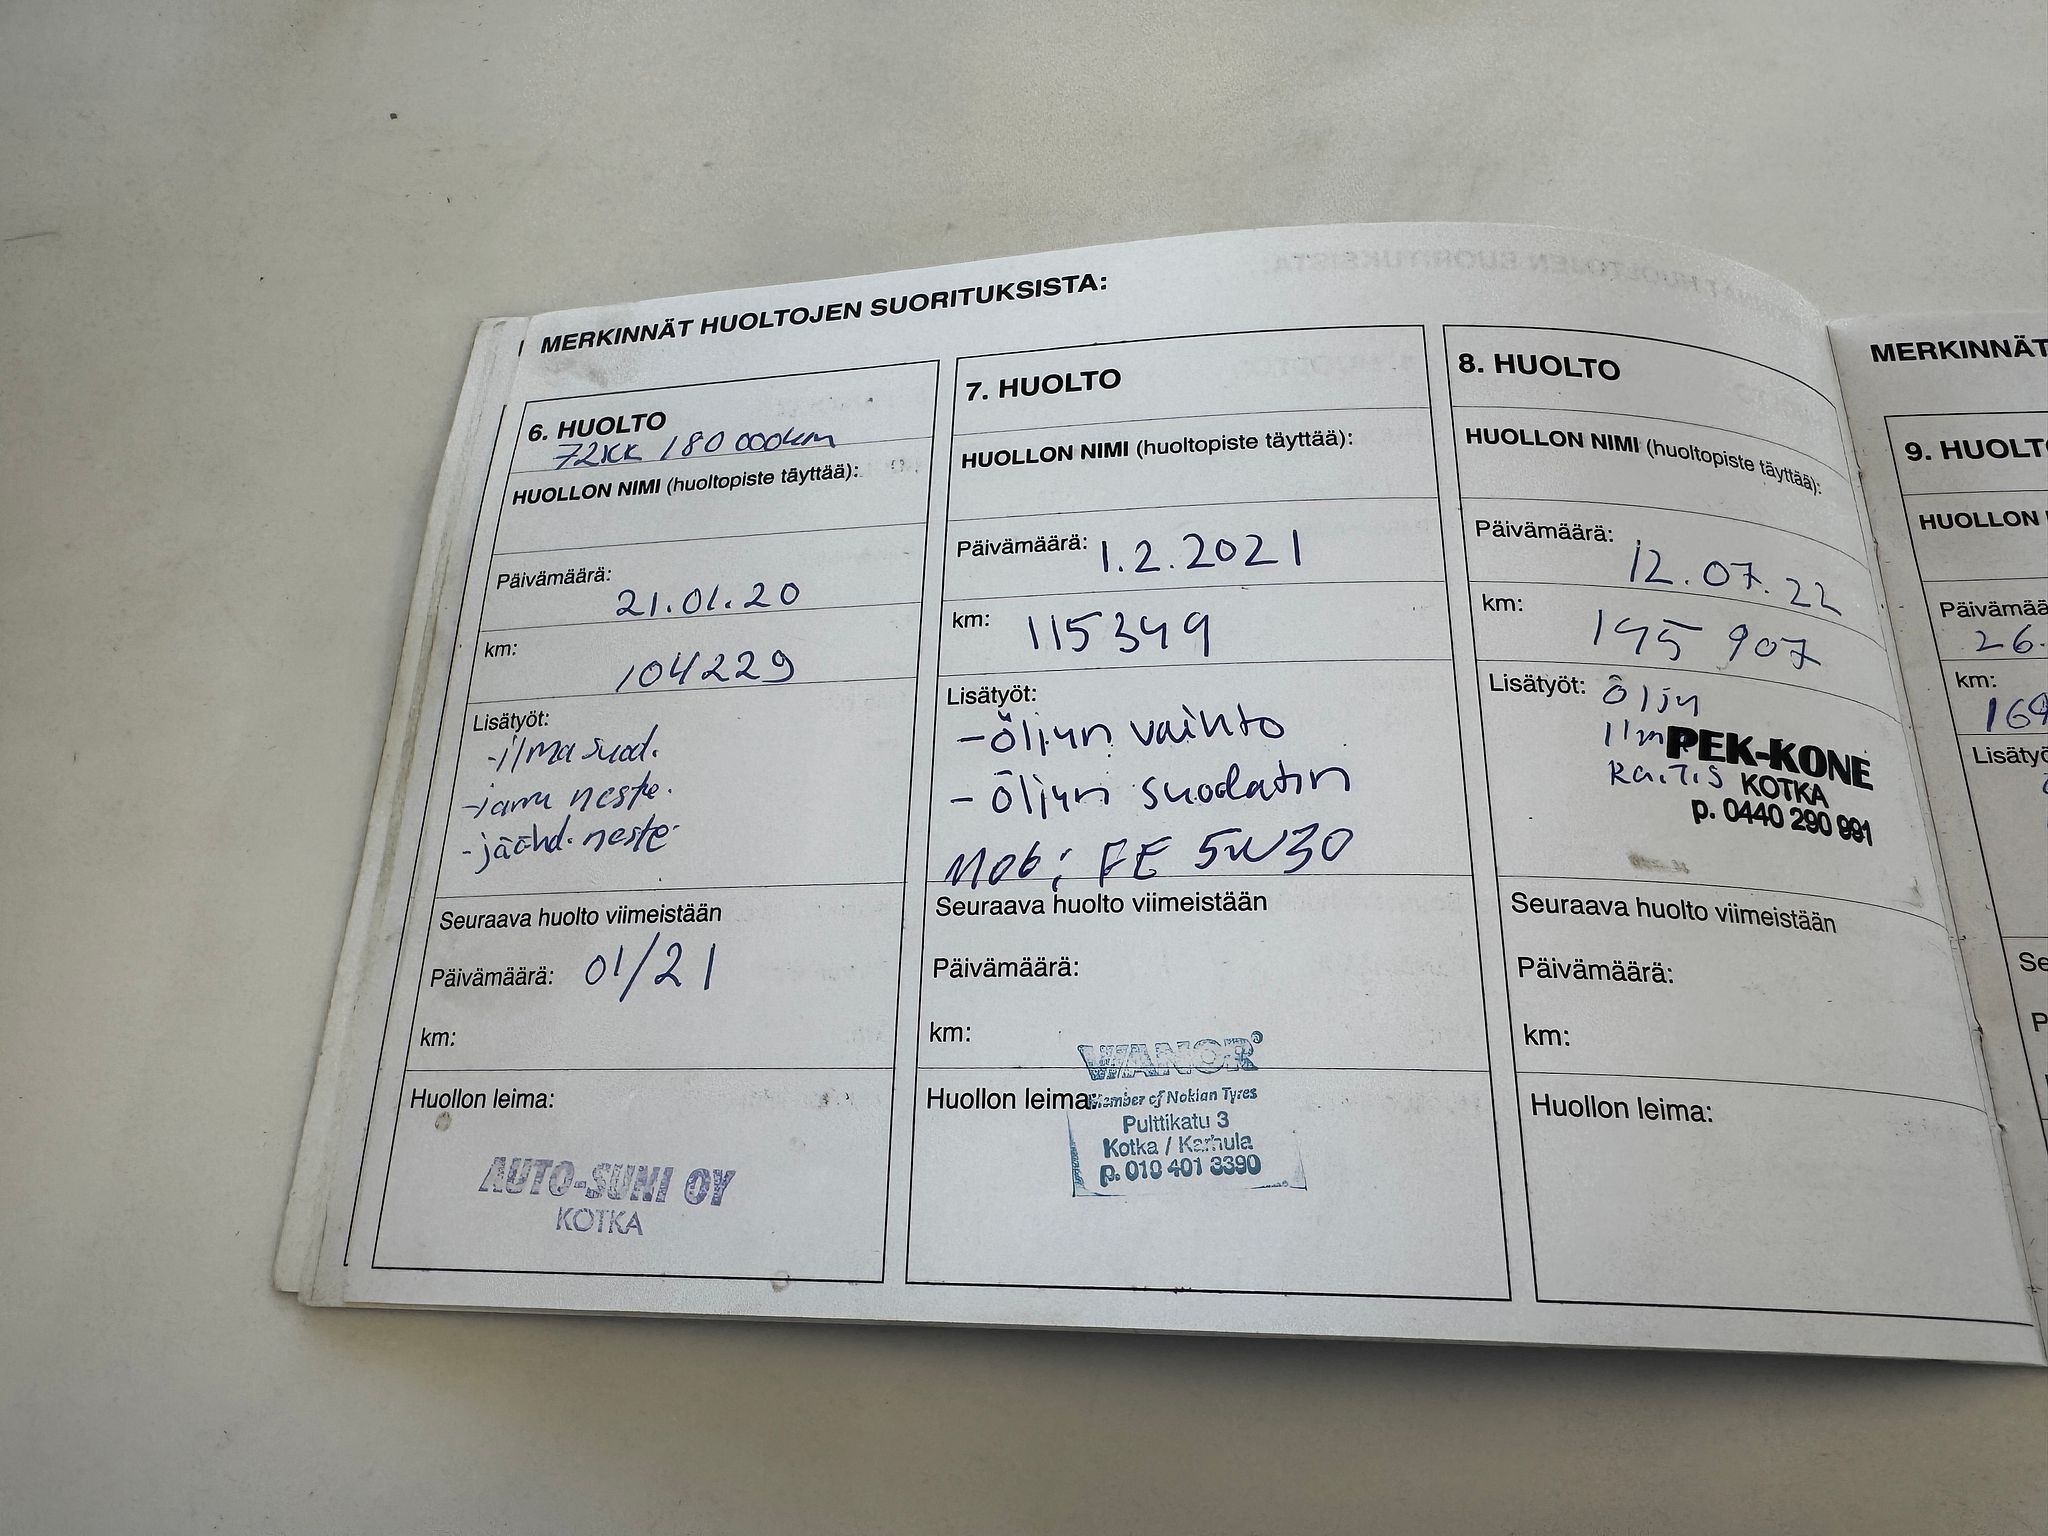 MERKINNÄT HUOLTOJEN SUORITUKSISTA:
6. HUOLTO
72KK 180 000km
HUOLLON NIMI (huoltopiste täyttää):
Päivämäärä: 21.01.20
km: 104229
Lisätyöt:
-ilmasuod.
-jarru neste.
-jäähd. neste.
Seuraava huolto viimeistään
Päivämäärä: 01/21
km:
Huollon leima:
AUTO-SUNI OY
KOTKA
7. HUOLTO
HUOLLON NIMI (huoltopiste täyttää):
Päivämäärä: 1.2.2021
km: 115349
Lisätyöt:
-öljyn vaihto
- öljyn suodatin
Mob; FE 5W30
Seuraava huolto viimeistään
Päivämäärä:
km:
Huollon leima:
WIANOR
Member of Nokian Tyres
Pulttikatu 3
Kotka / Karhula
p. 010 401 3390
8. HUOLTO
HUOLLON NIMI (huoltopiste täyttää):
Päivämäärä: 12.07.22
km: 145 907
Lisätyöt: öljy
ilma
Raitis
PEK-KONE
KOTKA
p. 0440 290 991
Seuraava huolto viimeistään
Päivämäärä:
km:
Huollon leima:
MERKINNÄT
9. HUOLTO
HUOLLON
Päivämää
26.
km:
164
Lisätyö
Se
P